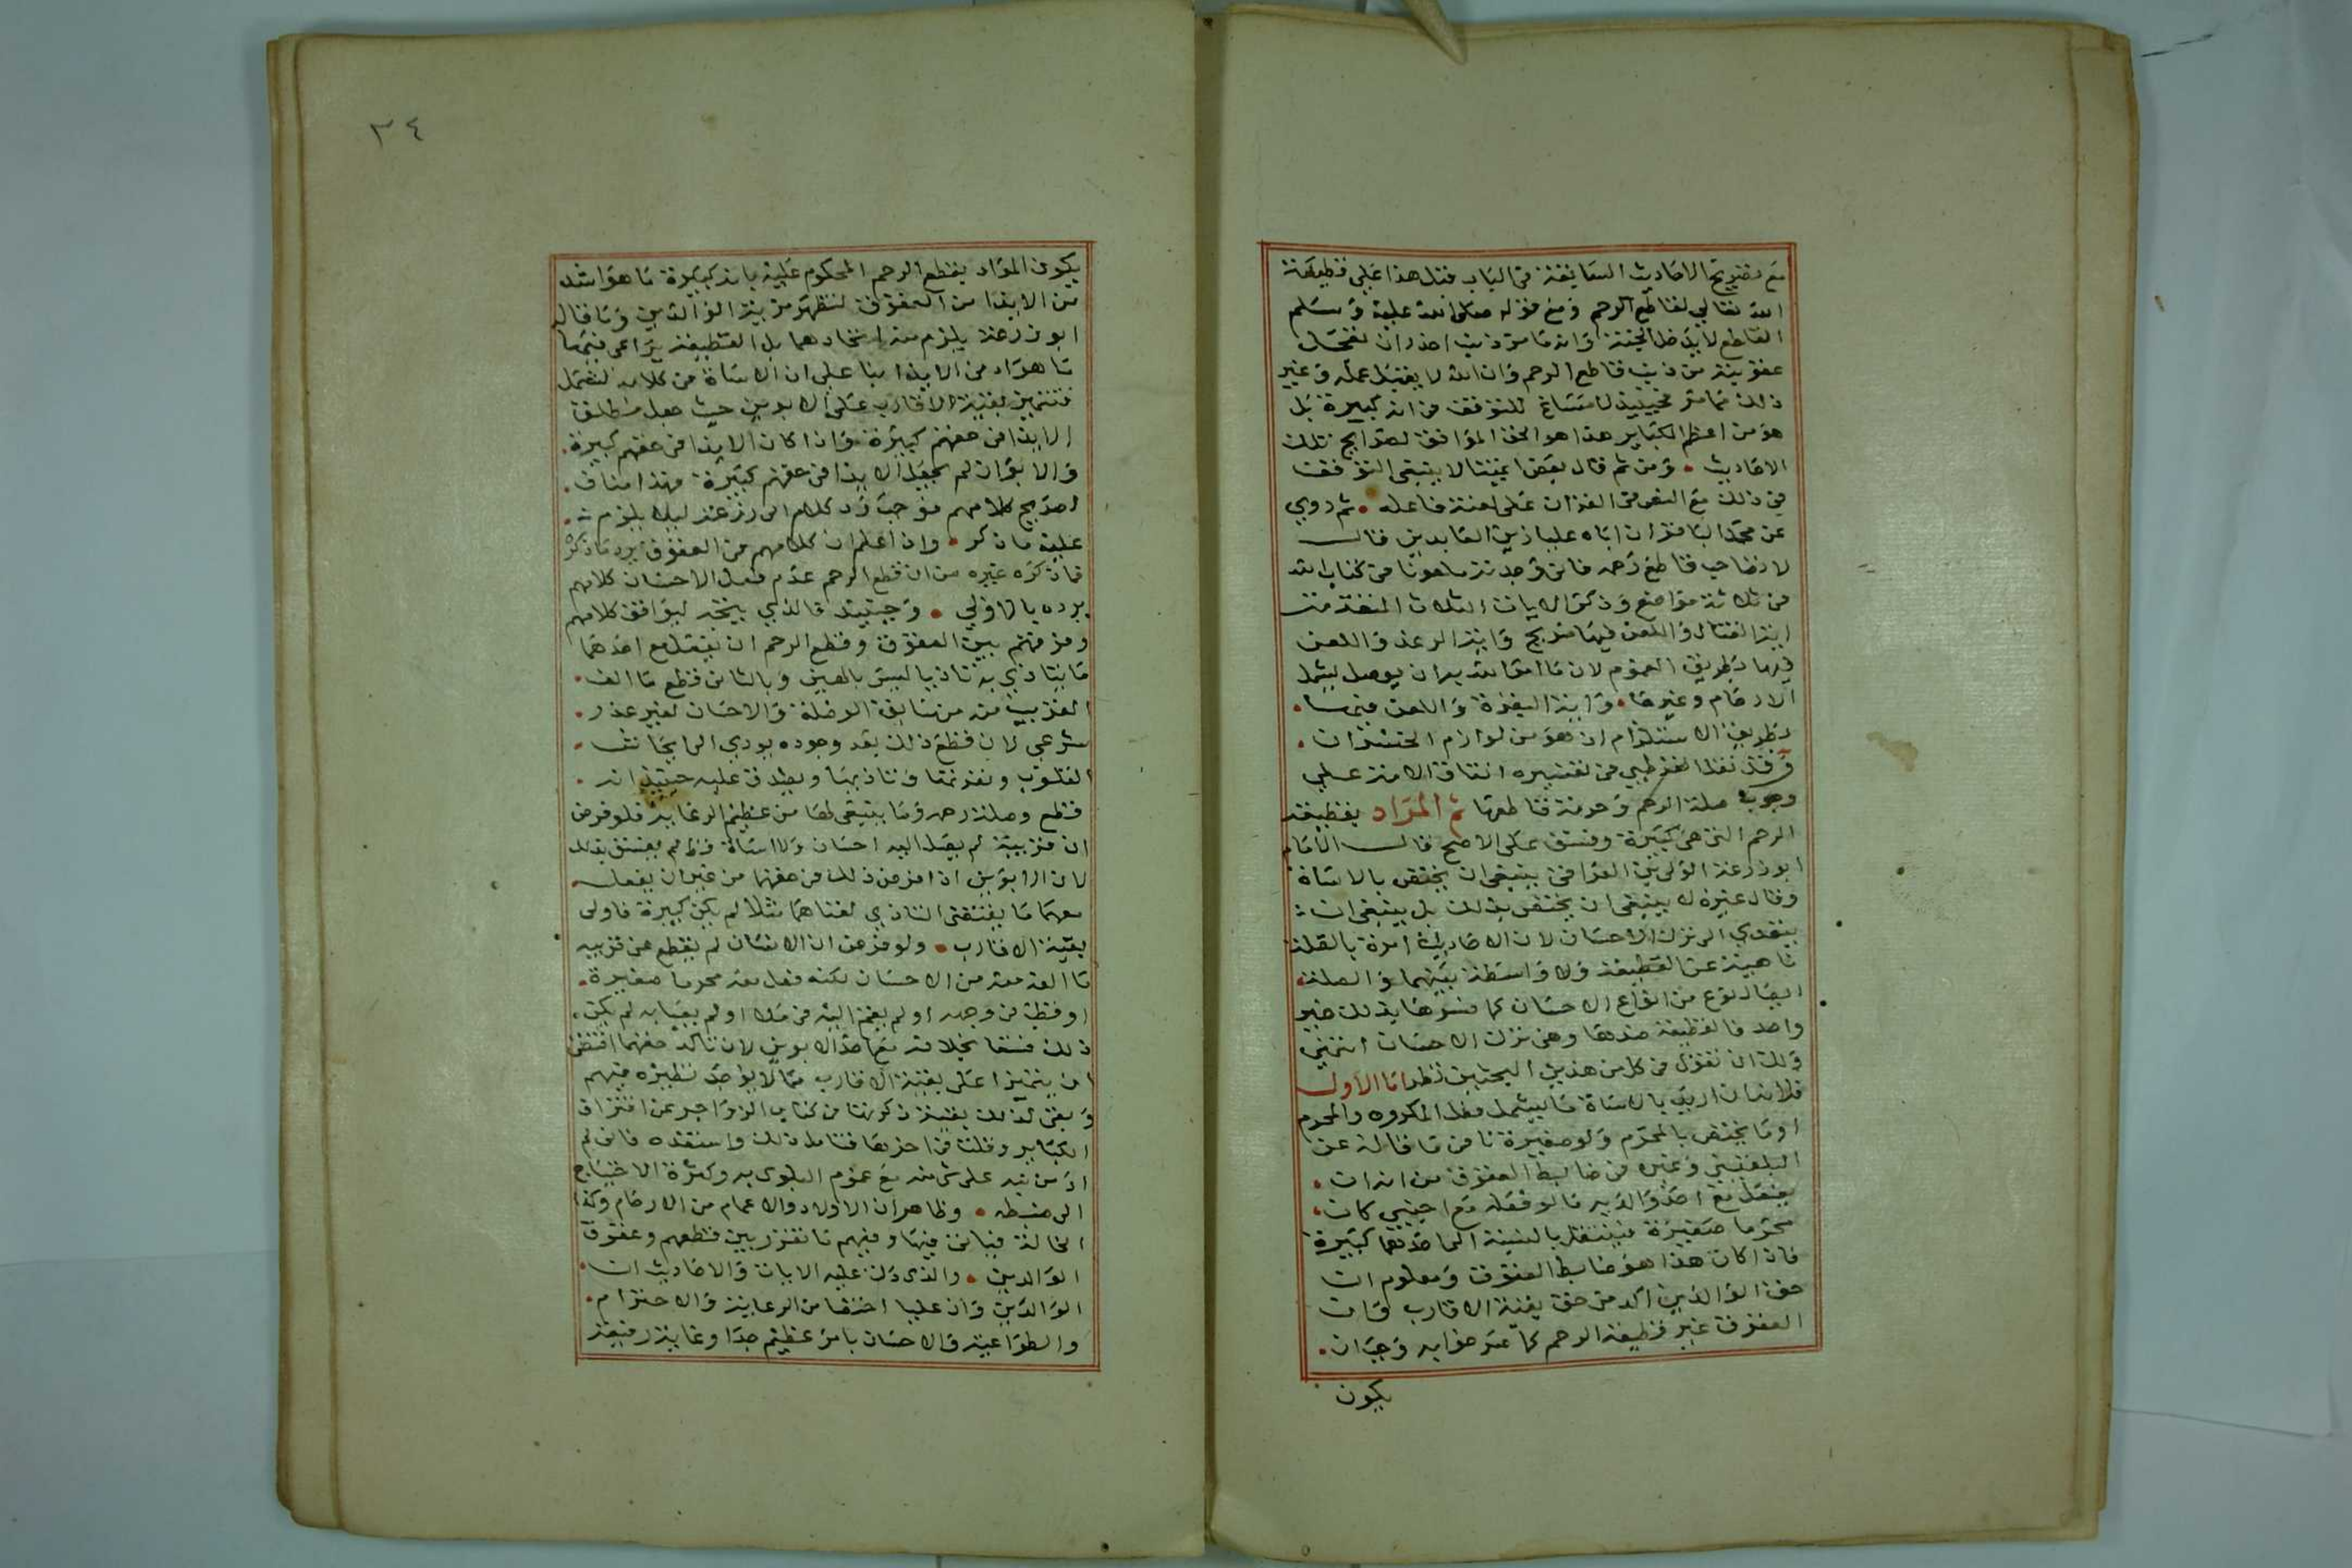 مع تصريح الاحاديث السابقة في الباب قبل هذا على قطيعة
الله تعالى لقاطع الرحم ومع قوله صلى الله عليه وسلم
القاطع لا يدخل الجنة وانه ما من ذنب اجدر ان تعجل
عقوبته من ذنب قاطع الرحم وان الله لا يقبل عمله وغير
ذلك مما مر فحينيذ لا مساغ للتوقف في انه كبيرة بل
هو من اعظم الكباير هذا هو الحق الموافق لصرايح تلك
الاحاديث • ومن ثم قال بعض ايمتنا لا ينبغي التوقف
في ذلك مع النص في القران على لعنة فاعله • ثم روي
عن محمد الباقر ان اباه عليا زين العابدين قال
لا تصاحب قاطع رحم فاني وجدته ملعونا في كتاب الله
في ثلاثة مواضع وذكر الايات الثلاث المتقدمة
اية القتال واللعن فيها صريح واية الرعد واللعن
فيها بطريق العموم لان ما امر الله به ان يوصل يشمل
الارحام وغيرها • واية البقرة واللعن فيها •
بطريق الاستلزام اذ هو من لوازم الخسران •
وقد نقل القرطبي في تفسيره اتفاق الامة على
وجوب صلة الرحم وحرمة قاطعها ثم المراد بقطيعة
الرحم التي هي كبيرة وفسق على الاصح قال الامام
ابو زرعة الولي بن العراقي ينبغي ان يختص بالاساة
وقال غيره لا ينبغي ان يختص بذلك بل ينبغي ان
يتعدي الى ترك الاحسان لان الاحاديث امرة بالصلة
ناهية عن القطيعة ولا واسطة بينهما والصلة
ايصال نوع من انواع الاحسان كما فسرها بذلك غير
واحد فالقطيعة ضدها وهي ترك الاحسان انتهى
ولك ان تقول في كل من هذين البحثين نظر اما الاول
فلانه ان اريد بالاساة ما يشمل فعل المكروه والمحرم
او ما يختص بالمحرم ولو صغيرة نافى ما قاله عن
البلقيني وغيره في ضابط العقوق من انه ان •
يفعل مع احد والديه ما لو فعله مع اجنبي كان •
محرما صغيرة فينتقل بالنسبة الى احدهما كبيرة
فاذا كان هذا هو ضابط العقوق ومعلوم ان
حق الوالدين اكد من حق بقية الاقارب وان
العقوق غير قطيعة الرحم كما صرحوا به وجب ان •
يكون
٣٤
يكون المراد بقطع الرحم المحكوم عليه بانه كبيرة ما هو اشد
من الايذا من العقوق لتظهر مزية الوالدين وما قاله
ابو زرعة يلزم منه اتحادهما بل القطيعة يراعى فيها
ما هو ادنى الايذا بنا على ان الاساة في كلامه تشمل
فتتميز بقية الاقارب على الابوين حيث جعل مطلق
الايذا في حقهم كبيرة واذا كان الايذا في حقهم كبيرة •
والابوان لم يجعل الايذا في حقهم كبيرة وهذا مناف •
لصريح كلامهم فوجب رد كلام ابي زرعة ليلا يلزم •
عليه ما ذكر • واذا علم ان كلامهم في العقوق يرد ما ذكره
فما ذكره غيره من ان قطع الرحم عدم فعل الاحسان كلامهم
يرده بالاولى • وحينيذ فالذي يتجه ليوافق كلامهم
وفرقهم بين العقوق وقطع الرحم ان يفعل مع احدهما
ما يتاذى به تاذيا ليس بالهين وبالثاني قطع ما الف •
القريب منه من سابق الوصلة والاحسان لغير عذر •
شرعي لان قطع ذلك بعد وجوده يودي الى ايحاش •
القلوب ونفرتها وتاذيها ويصدق عليه حينيذ انه •
قطع وصلة رحمه وما ينبغي لها من عظيم الرعاية فلو فرض
ان قريبه لم يصل اليه احسان ولا اساة قط لم يفسق بذلك
لان الابوين اذا فرض ذلك في حقهما من غير ان يفعل •
معهما ما يقتضي التاذي لغناهما مثلا لم يكن كبيرة فاولى
بقية الاقارب • ولو فرض ان الانسان لم يقطع عن قريبه
ما الفه منه من الاحسان لكنه فعل معه محرما صغيرة •
او قطب في وجهه او لم يقم اليه في ملا او لم يعبا به لم يكن •
ذلك فسقا بخلافه مع احد الابوين لان تاكد حقهما اقتضى
ان يتميزا على بقية الاقارب بما لا يوجد نظيره فيهم
وبقي لذلك بقية ذكرتها في كتاب الزواجر عن اقتراف
الكباير وقلت في اخرها فتامل ذلك واستفده فاني لم
ار من نبه على شي منه مع عموم البلوى به وكثرة الاحتياج
الى ضبطه • وظاهر ان الاولاد والاعمام من الارحام وكذا
الخالة فياتي فيها وفيهم ما تقرر بين قطعهم وعقوق
الوالدين • والذي دلت عليه الايات والاحاديث ان •
الوالدين وان عليا احقا من الرعاية والاحترام •
والطواعية والاحسان بامر عظيم جدا وغاية رفيعة